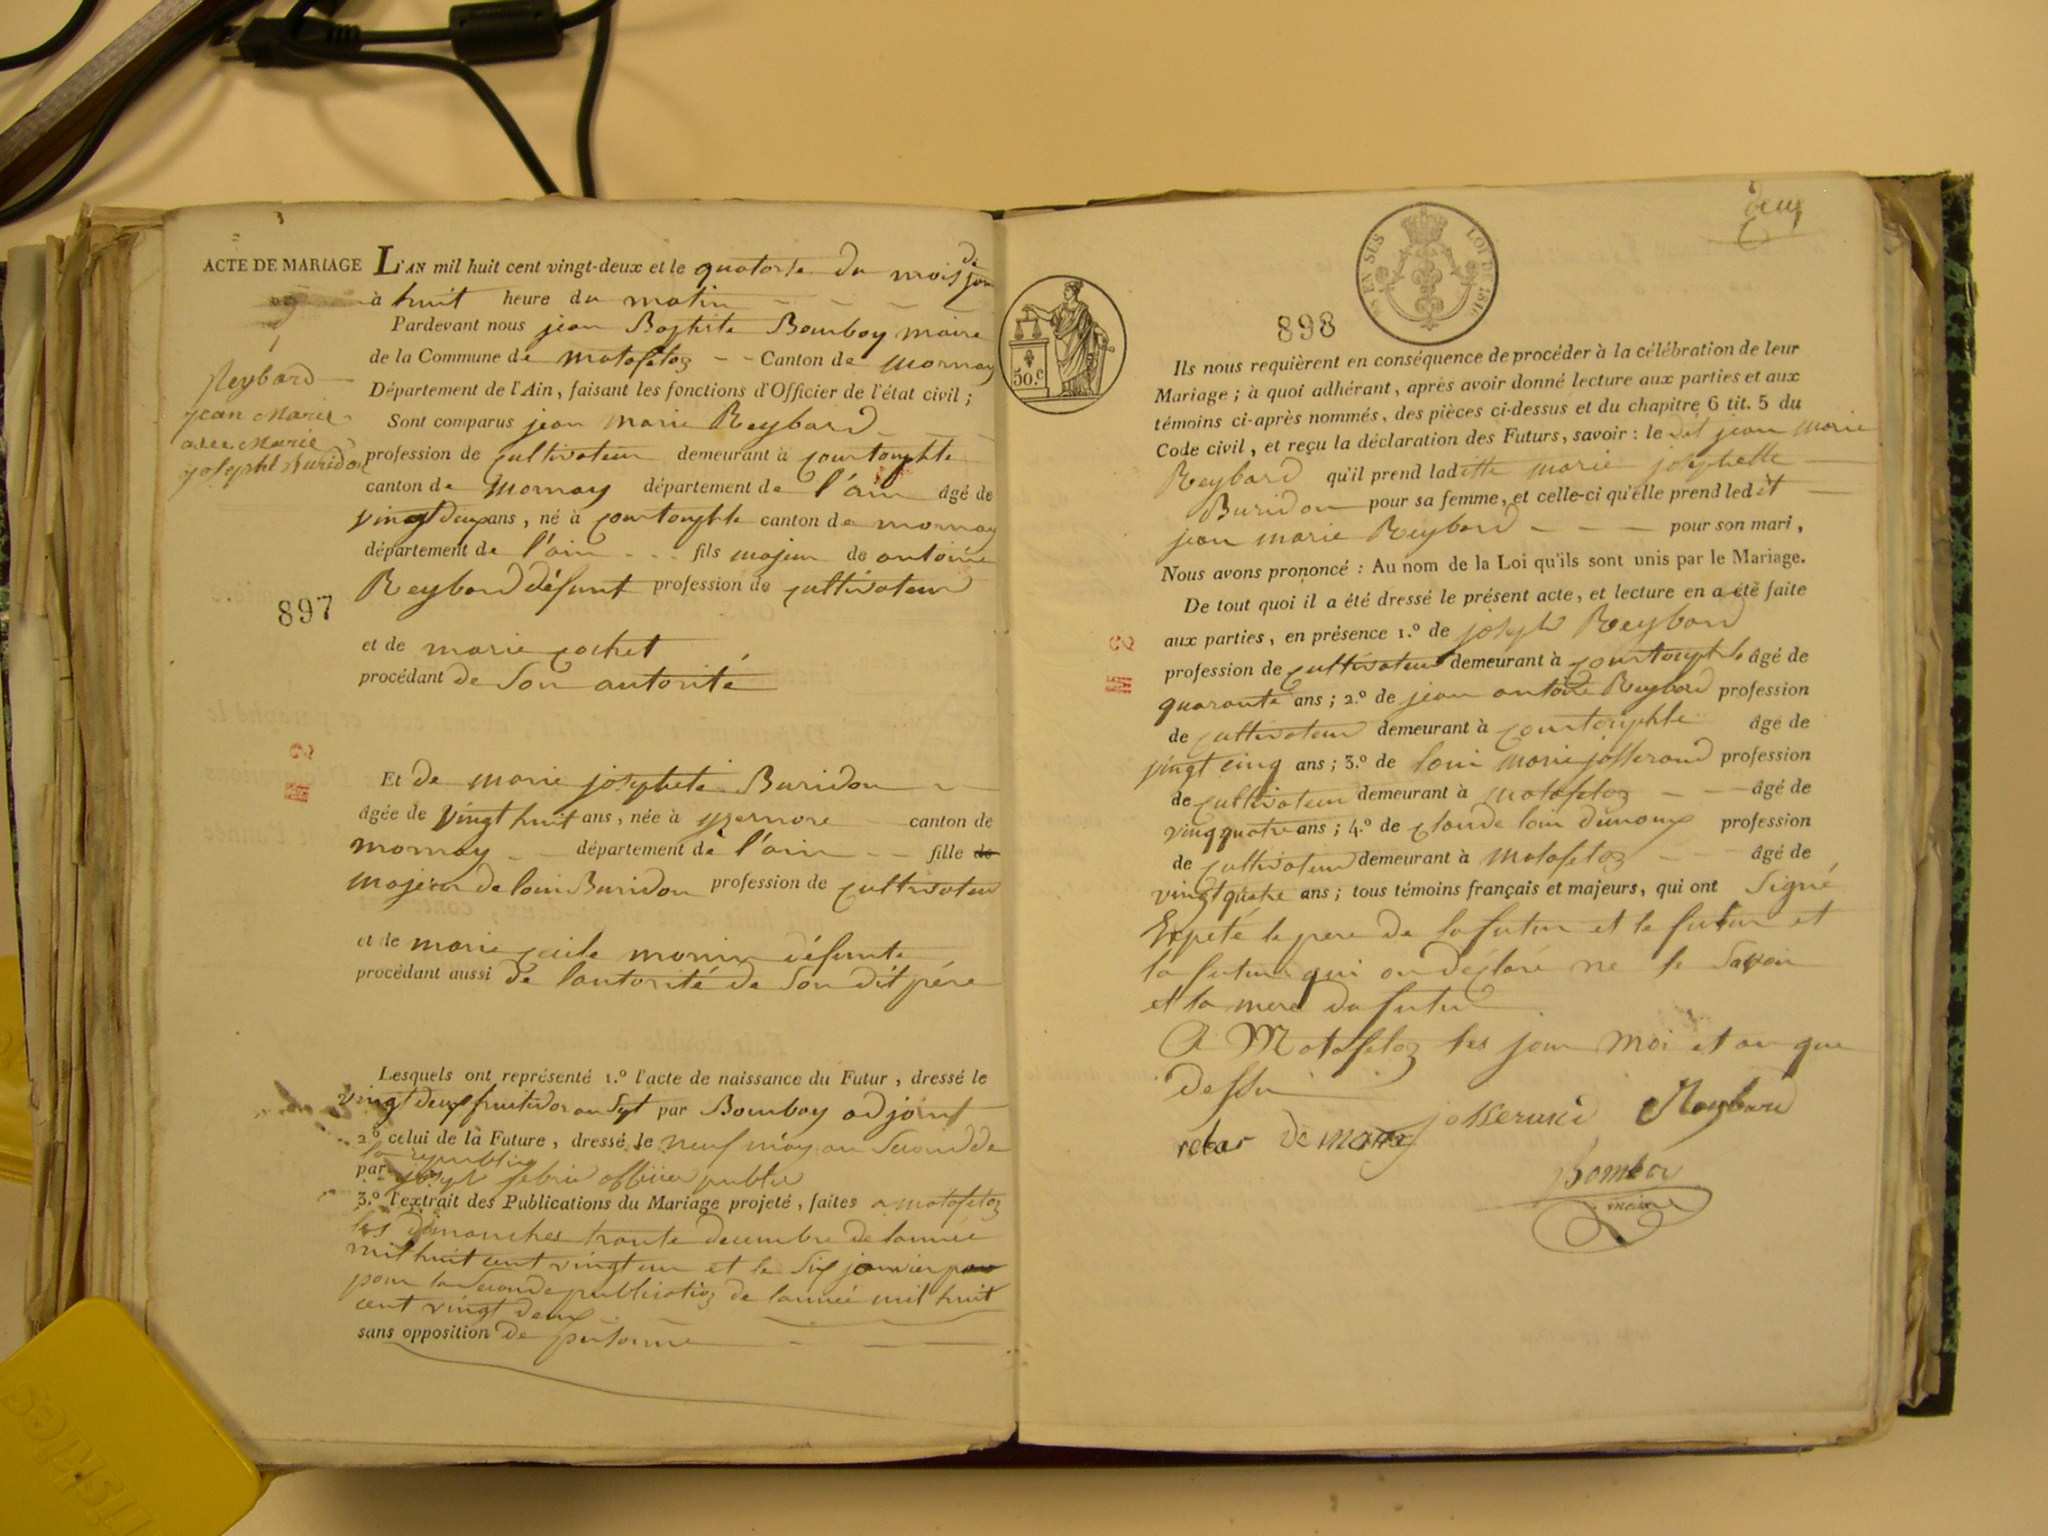 ACTE DE MARIAGE
Reybard
jean Marie
avec Marie
josepht Buridon
L'AN mil huit cent vingt-deux et le quatorse du mois de
à huit heure du matin
Pardevant nous jean Baptiste Bomboy maire
de la Commune de matafeloz Canton de mornay
Département de l'Ain, faisant les fonctions d'Officier de l'état civil ;
Sont comparus jean marie Reybard
profession de cultivateur demeurant à courtouphle
canton de Mornay département de l'ain âgé de
vingt deux ans, né à courtouphle canton de mornay
département de l'ain fils majeur de antoine
Reybard défunt profession de cultivateur
897
et de marie cochet
procédant de Son autorité
Et de marie josephete Buridon
âgée de vingt huit ans, née à yzernore canton de
mornay département de l'ain fille de
majeur de loui Buridon profession de cultivateur
et de marie cecile défunte
procédant aussi de lautorité de Son dit père
Lesquels ont représenté 1.º l'acte de naissance du Futur, dressé le
vingt deux fructidor an Sept par Bomboy adjoint
2º celui de la Future, dressé le neuf may an Second de
la republique
par joseph officier public
3.º l'extrait des Publications du Mariage projeté, faites a matafeloz
les dimanches trante decembre de lannée
mil huit cent vingt un et le Six janvier
pour la Seconde publication de lannée mil huit
cent vingt deux
sans opposition de personne
50.c
deux
EN SUS LOI DE 1816
898
Ils nous requièrent en conséquence de procéder à la célébration de leur
Mariage ; à quoi adhérant, après avoir donné lecture aux parties et aux
témoins ci-après nommés, des pièces ci-dessus et du chapitre 6 tit. 5 du
Code civil, et reçu la déclaration des Futurs, savoir : le dit jean marie
Reybard qu'il prend laditte marie josephette
Buridon pour sa femme, et celle-ci qu'elle prend ledit
jean marie Reybard pour son mari,
Nous avons prononcé : Au nom de la Loi qu'ils sont unis par le Mariage.
De tout quoi il a été dressé le présent acte, et lecture en a été faite
aux parties, en présence 1.º de joseph Reybard
profession de cultivateur demeurant à courtouphle âgé de
quarante ans ; 2.º de jean antoine Reybard profession
de cultivateur demeurant à courtouphle âgé de
vingt cinq ans ; 3.º de loui marie josserand profession
de cultivateur demeurant à matafeloz âgé de
vingquatre ans ; 4.º de claude loui profession
de cultivateur demeurant à Matafeloz âgé de
vingt quatre ans ; tous témoins français et majeurs, qui ont Signé
Expeté le pere de la futur et le futur et
la future qui on declaré ne le Savoir
et la mere du futur
A Matafeloz les jour moi et an que
dessu
josserand Reybard
rebar
Bomboy
maire